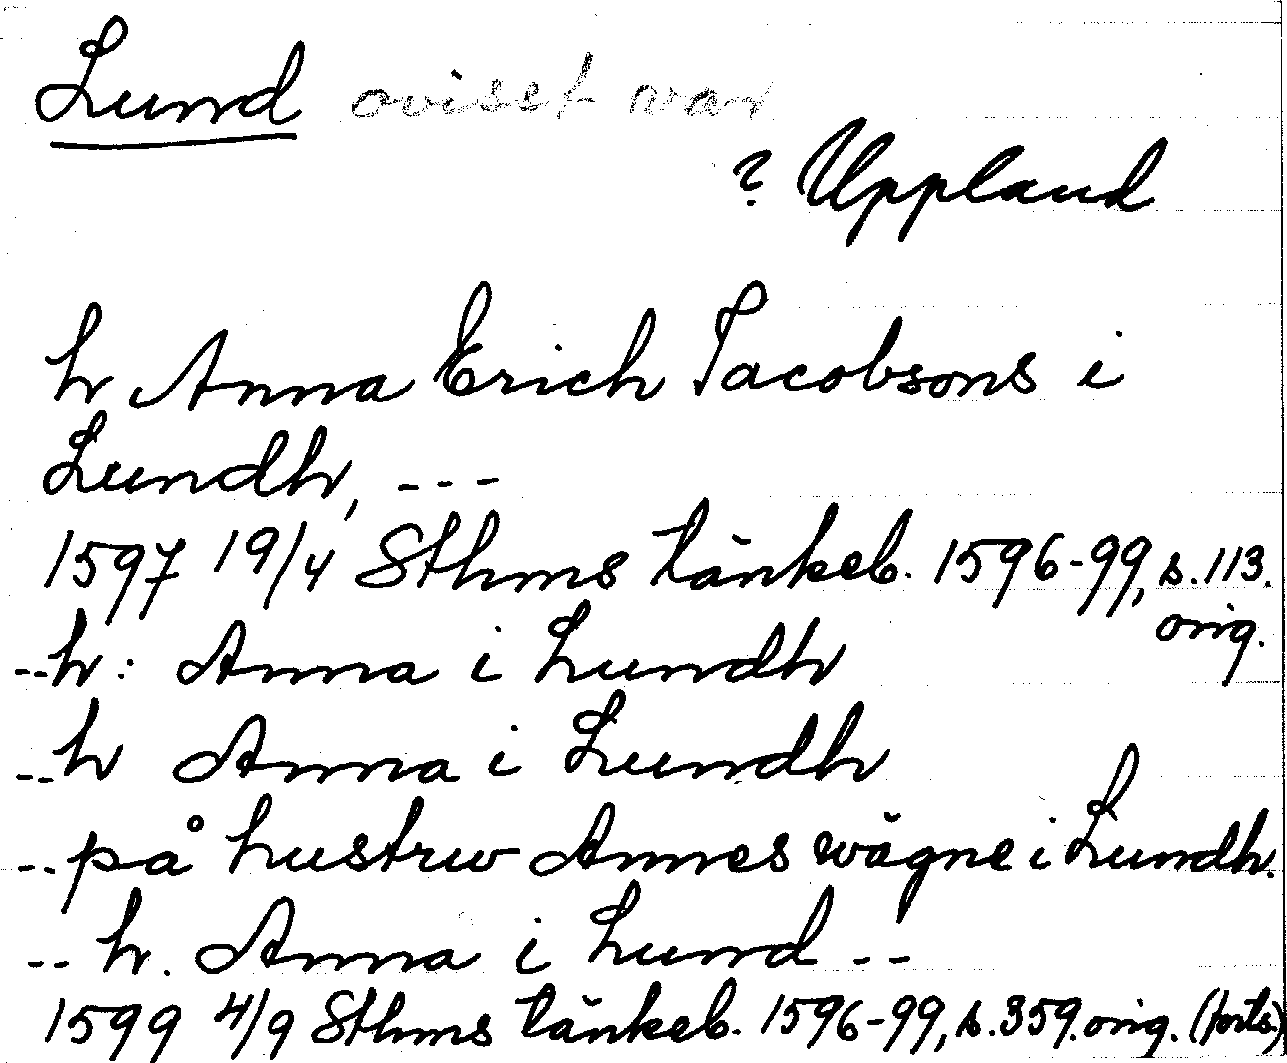 Lund ovisst var
? Uppland
h Anna Erich Jacobsons i
Lundh, ---
1597 19/4 Sthms tänkeb. 1596-99, s. 113.
orig.
--h: Anna i Lundh
--h Anna i Lundh
--på hustrw Annes wägne i Lundh.
--h. Anna i Lund --
1599 4/9 Sthms tänkeb. 1596-99, s. 359. orig. (forts.)